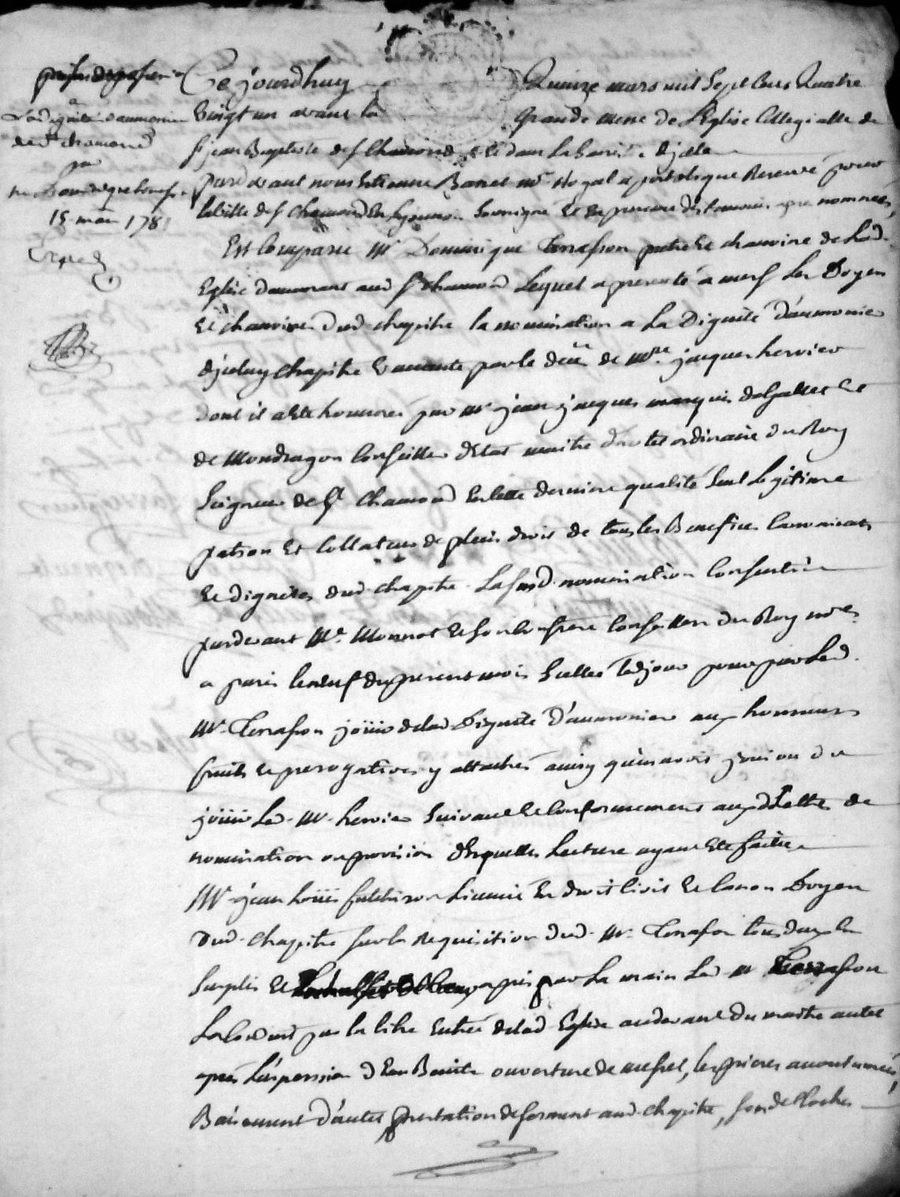 prise de possession
de la dignité d'aumonier
de St chamond
par
Mr Dominique terrasson
15 mars 1781
Ce jourdhuy Quinze mars mil sept cens Quatre
Vingt un avant la Grande Messe de L'Eglise Collegialle de
St jean Baptiste de St Chamond et dans La d'icelle
pardevant nous Etienne Royal apostolique Reservé pour
la ville de St Chamond en Lyonnois Soussigné Et en presence des temoins apres nommés,
Est Comparu Mr Dominique Terrasson pretre Et chanoine de Lad.
Eglise demeurant aud St Chamond Lequel a presenté a messrs Les Doyen
Et chanoines dud. chapitre la nomination a La Dignité d'aumonier
d'jceluy Chapitre Vacante par le de Mre jacques hervier
dont il a Eté honnoré par Mre jean jacques marquis de Gallet Et
de Mondragon Conseiller d'Etat maitre d'hotel ordinaire du Roy
Seigneur de St Chamond En Cette derniere qualité Seul Legitime
patron Et Collateur de plein droit de tous les Benefices Canonicats
Et dignités dud. chapitre. Lasusd. nomination
pardevant Me. Monnot Et son Confrere Conseillers du Roy nres
a paris le neuf du present mois Scellée ledjour pour par Led.
Mr. Terrasson joüir de lad Dignité d'aumonier aux honneurs
fruits Et prerogatives y attachés ainsy qu'en avoit joui ou du
joüir Led. Mr. hervier Suivant Et Conformement auxd Lettres de
nomination ou provision desquelles Lecture ayant Eté faitte
Mr. jean Loüis Licencié En droit Civil Et Canon Doyen
Dud. Chapitre sur la Requisition dud. Mr. Terrasson tous deux En
Surplis Et a pris par La main Led Mr Terrasson
par la libre Entrée de lad Eglise audevant du maitre autel
après L'aspersion d'Eau Benite ouverture de missel, les prieres accoutumées,
Baisement d'autel prestation de serment aud. chapitre, son de Cloches